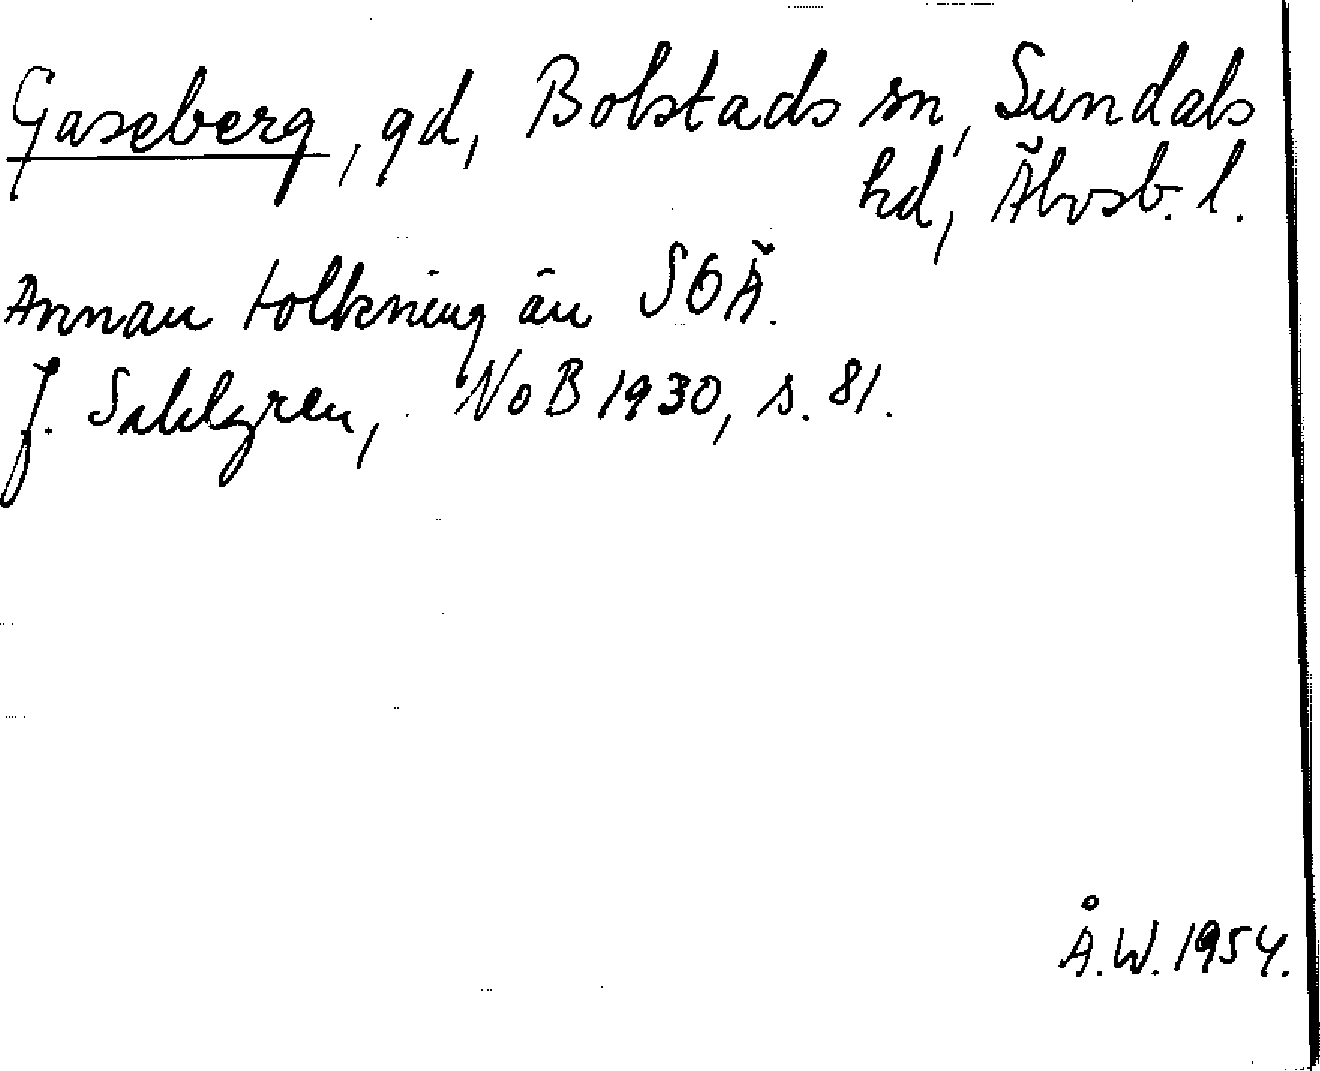 Gaseberg, gd, Bolstads sn, Sundals
hd, Älvsb. l.
Annan tolkning än SOÄ.
J. Sahlgren, NoB 1930, s. 81.
Å.W. 1954.